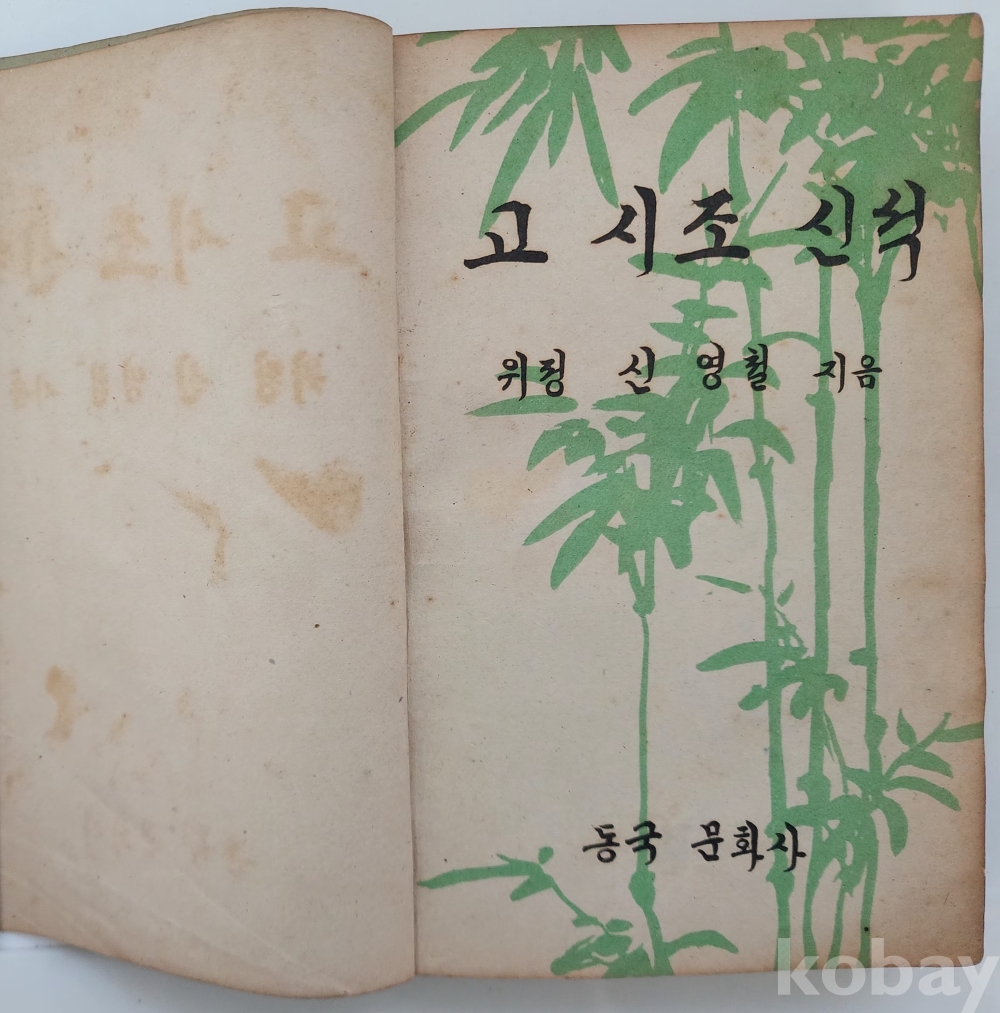 고 시조 신석
위정 신 영철 지음
동국 문화사
kobay